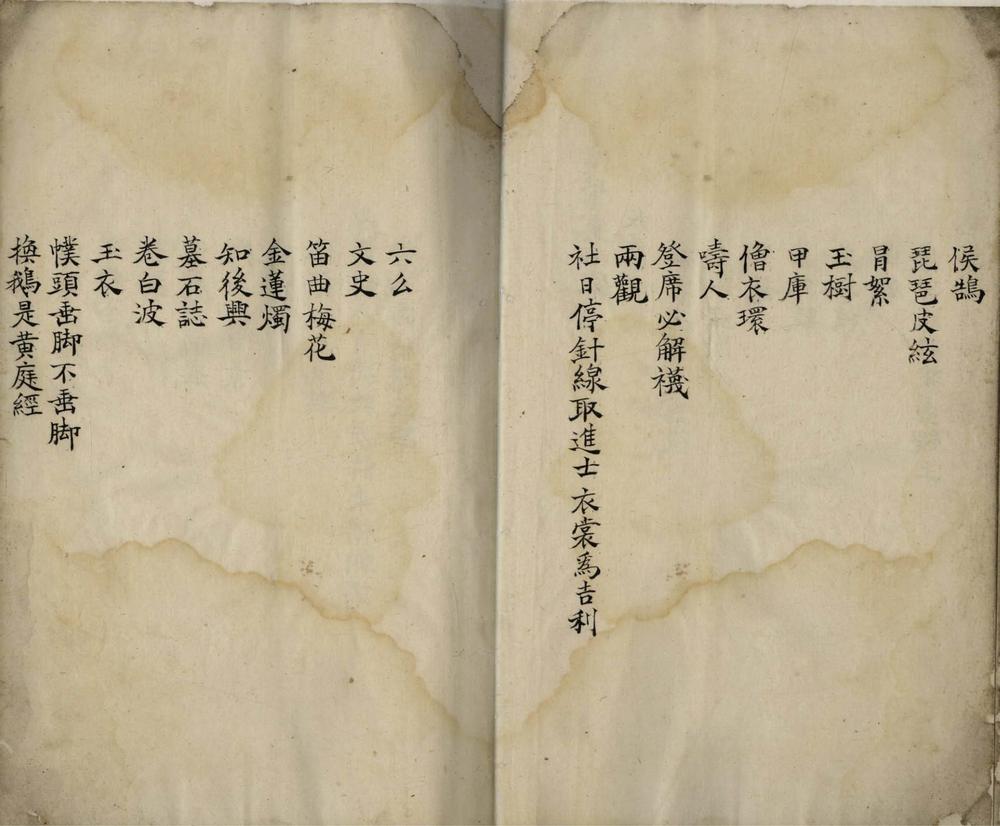 侯鵠
琵琶皮絃
冐絮
玉樹
甲庫
僧衣環
嚋人
登席必解襪
兩觀
社日停針線取進士衣裳爲吉利
六么
文史
笛曲梅花
金蓮燭
知後興
墓石誌
卷白波
玉衣
幞頭垂脚不垂脚
換鵝是黄庭經